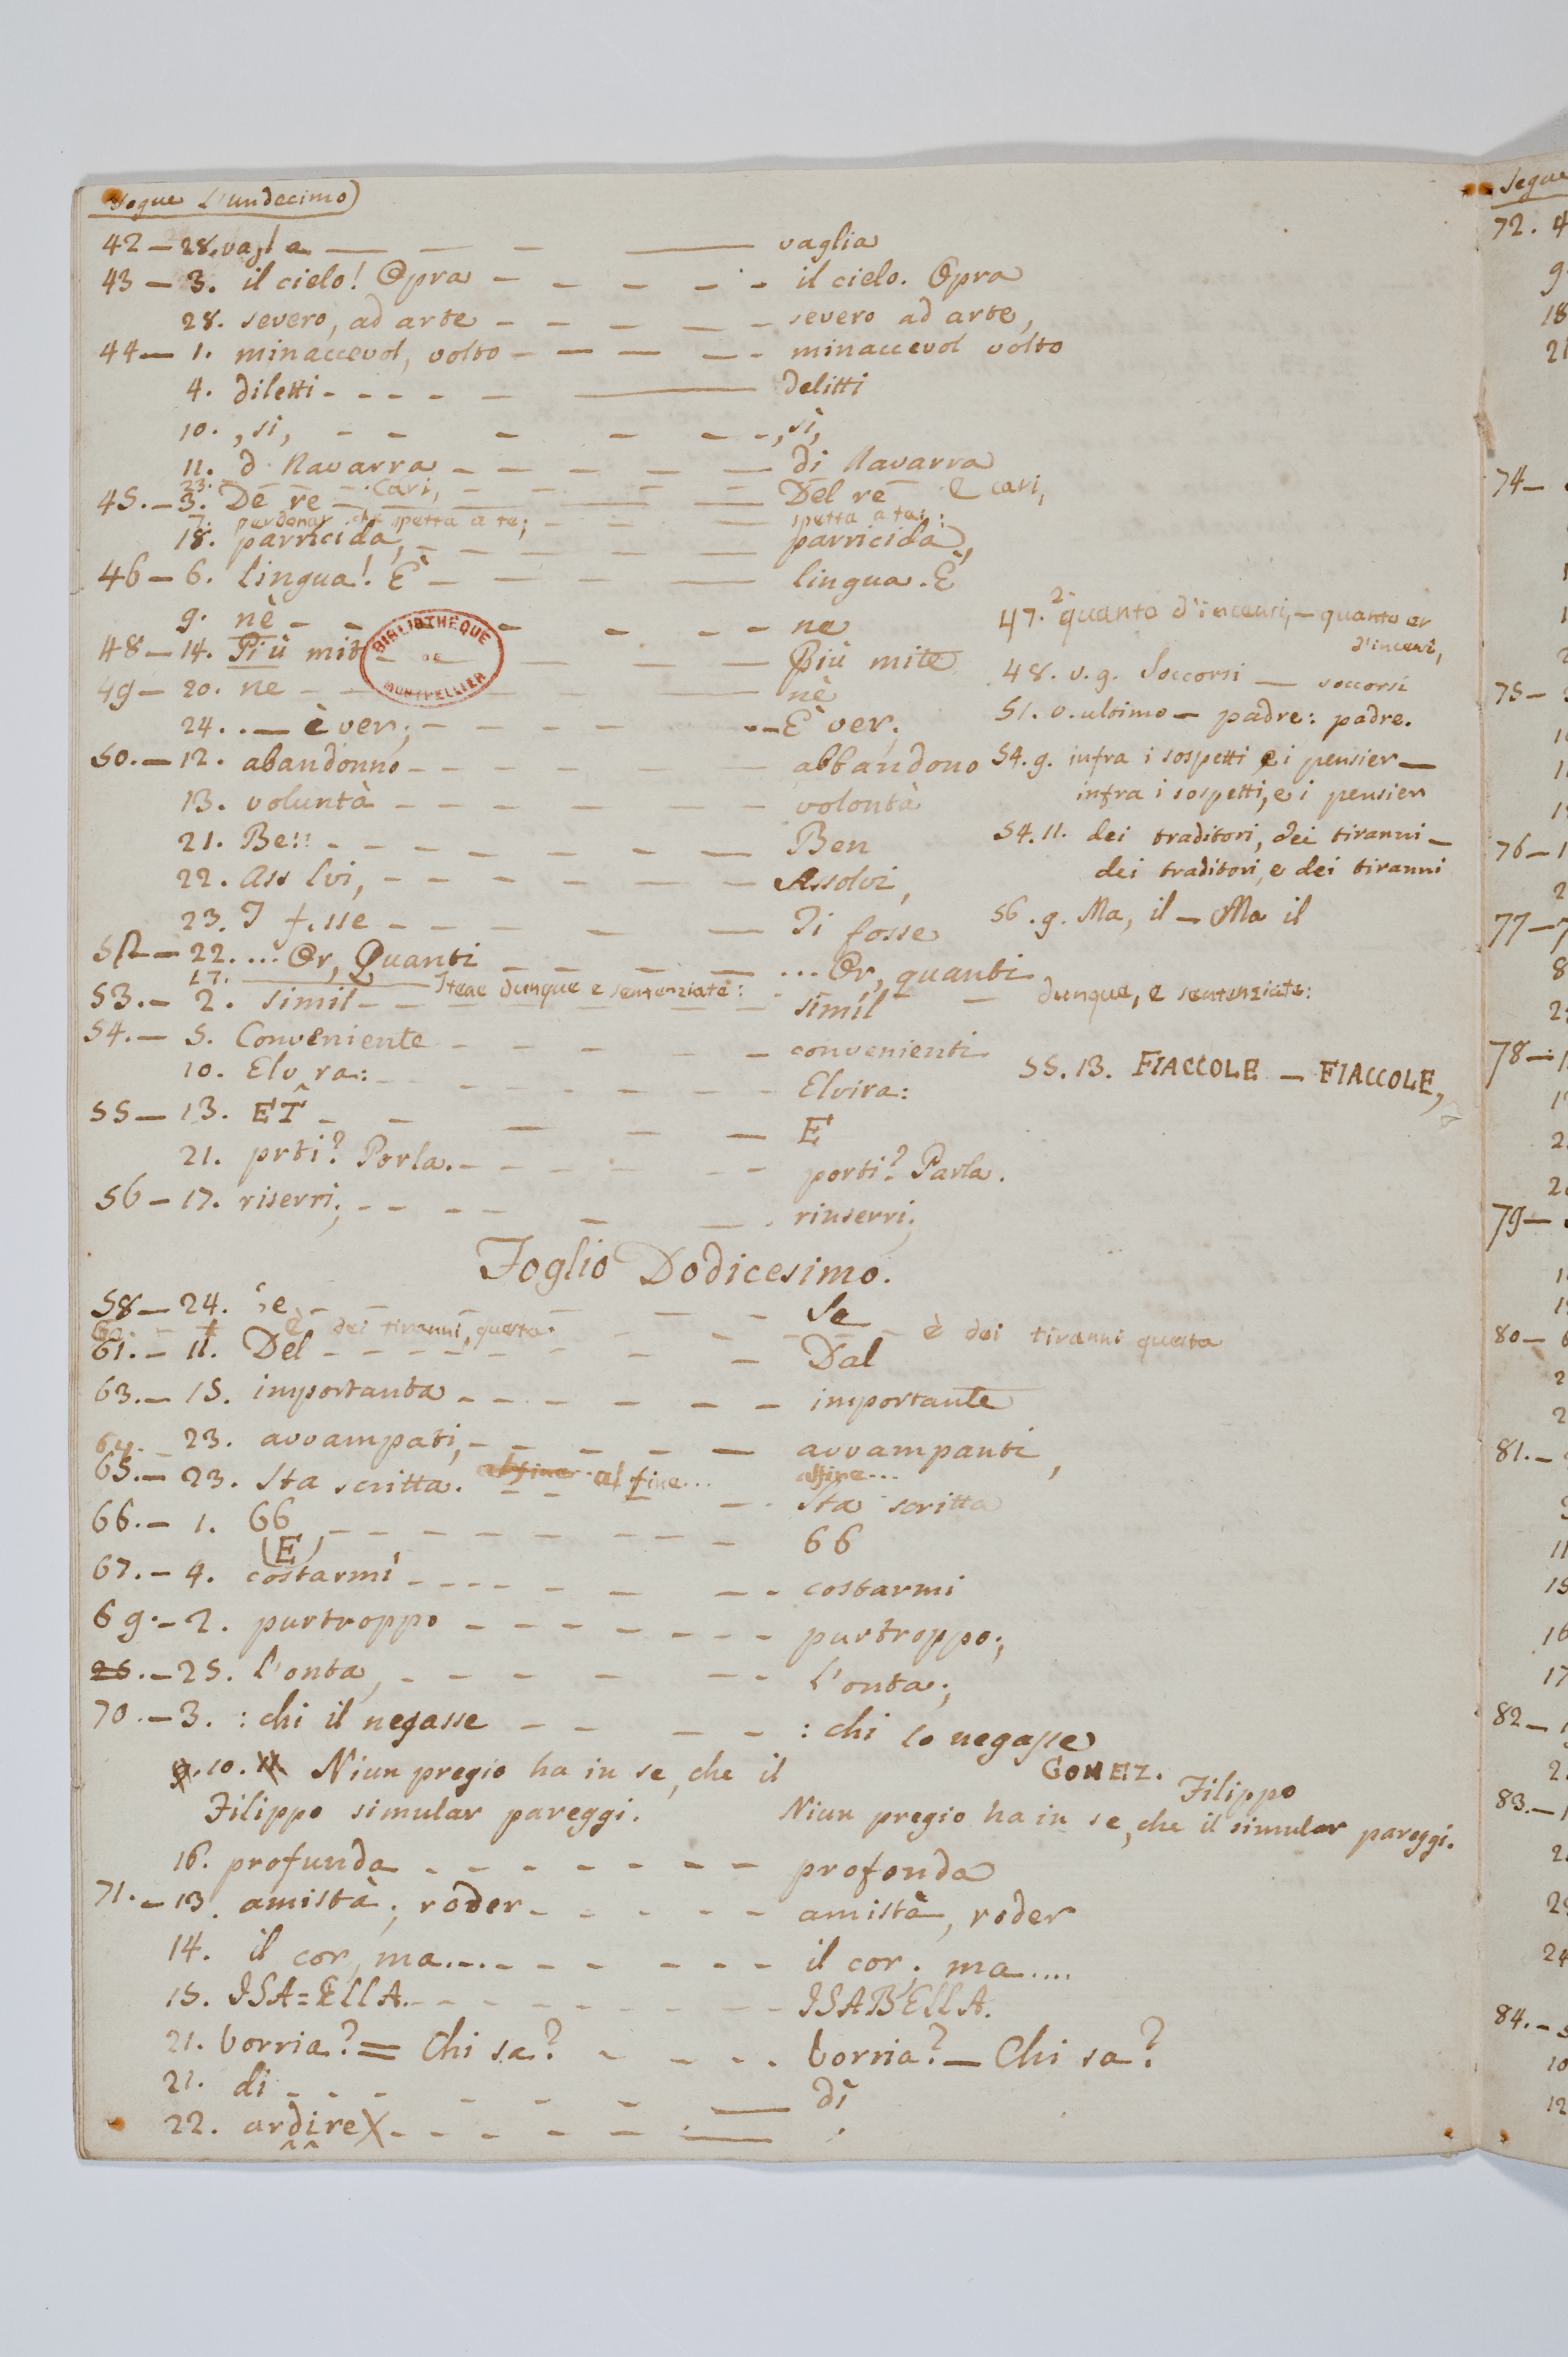 Segue L'undecimo)
42 — 28. vagl a — — — vaglia
43 — 3. il cielo! Opra — — — il cielo. Opra
28. severo, ad arte — — — severo ad arte,
44 — 1. minaccevol, volto — — — minaccevol volto
4. diletti — — — delitti
10. , si, — — — , sì,
11. d Navarra — — — di Navarra
23. — — Cari, — — — E cari,
45. — 3. De re — — — Del re
7. perdonar che spetta a te; — — — spetta a te:
18. parricida, — — — parricida,
46 — 6. lingua! È — — — lingua. È
9. nè — — — ne
48 — 14. Più mit — — — Più mite
49 — 20. ne — — — nè
24. . — è ver; — — — . . — È ver;
50. — 12. abandonno — — — abbandono
13. voluntà — — — volontà
21. Be!! — — — Ben
22. Ass lvi, — — — Assolvi,
23. T f.sse — — — Ti fosse
52 — 22. ... Or, Quanti — — — ... Or, quanti
27. — Itene dunque e sentenziate: — dunque, e sentenziate:
53. — 2. simil — — — simìl
54. — 5. Conveniente — — — convenienti
10. Elv ra: — — — Elvira:
55 — 13. ET — — — E
21. prti? Porla. — — — porti? Parla.
56 — 17. riserri; — — — rinserri;
47. 2. quanto d'incensi, — quanto
d'incensi,
48. v. 9. Soccorsi — soccorsi
51. v. ultimo — padre: padre.
54. 9. infra i sospetti e i pensier —
infra i sospetti, e i pensier
54. 11. dei traditori, dei tiranni —
dei traditori, e dei tiranni
56. 9. Ma, il — Ma il
55. 13. FIACCOLE — FIACCOLE,
Foglio Dodicesimo.
58 — 24. Se — — — Se
È dei tiranni, questa — — — è dei tiranni questa
61. — 11. Del — — — Dal
63. — 15. importanta — — — importante
64. — 23. avvampati, — — — avvampanti,
al fine... alfine...
65. — 23. Sta scritta. — — — Sta scritta
66. — 1. 66 — — — 66
(E)
67. — 4. costarmi — — — costarmi
69. — 2. purtroppo — — — purtroppo;
25. — 25. l'onta, — — — l'onta;
70. — 3. : chi il negasse — — — : chi lo negasse
9. 10. 11. Niun pregio ha in se, che il
Filippo simular pareggi.
GOMEZ.
Filippo
Niun pregio ha in se, che il simular pareggi.
16. profunda — — — profonda
71. — 13. amistà; roder — — — amistà, roder
14. il cor, ma.... — — — il cor; ma.....
15. ISA=ELLA. — — — ISABELLA.
21. borria? = Chi sa? — — — borria? — Chi sa?
21. di — — — dì
22. ardire X — — — ;
BIBLIOTHEQUE
DE
MONTPELLIER
Segue
72. 4
9
18
21
74 —
75 —
76 — 1
2
77 — 7
8
78 — 1
79 —
80 — 6
81. —
11
15
16
17
82 —
83. —
24
84. —
10
12